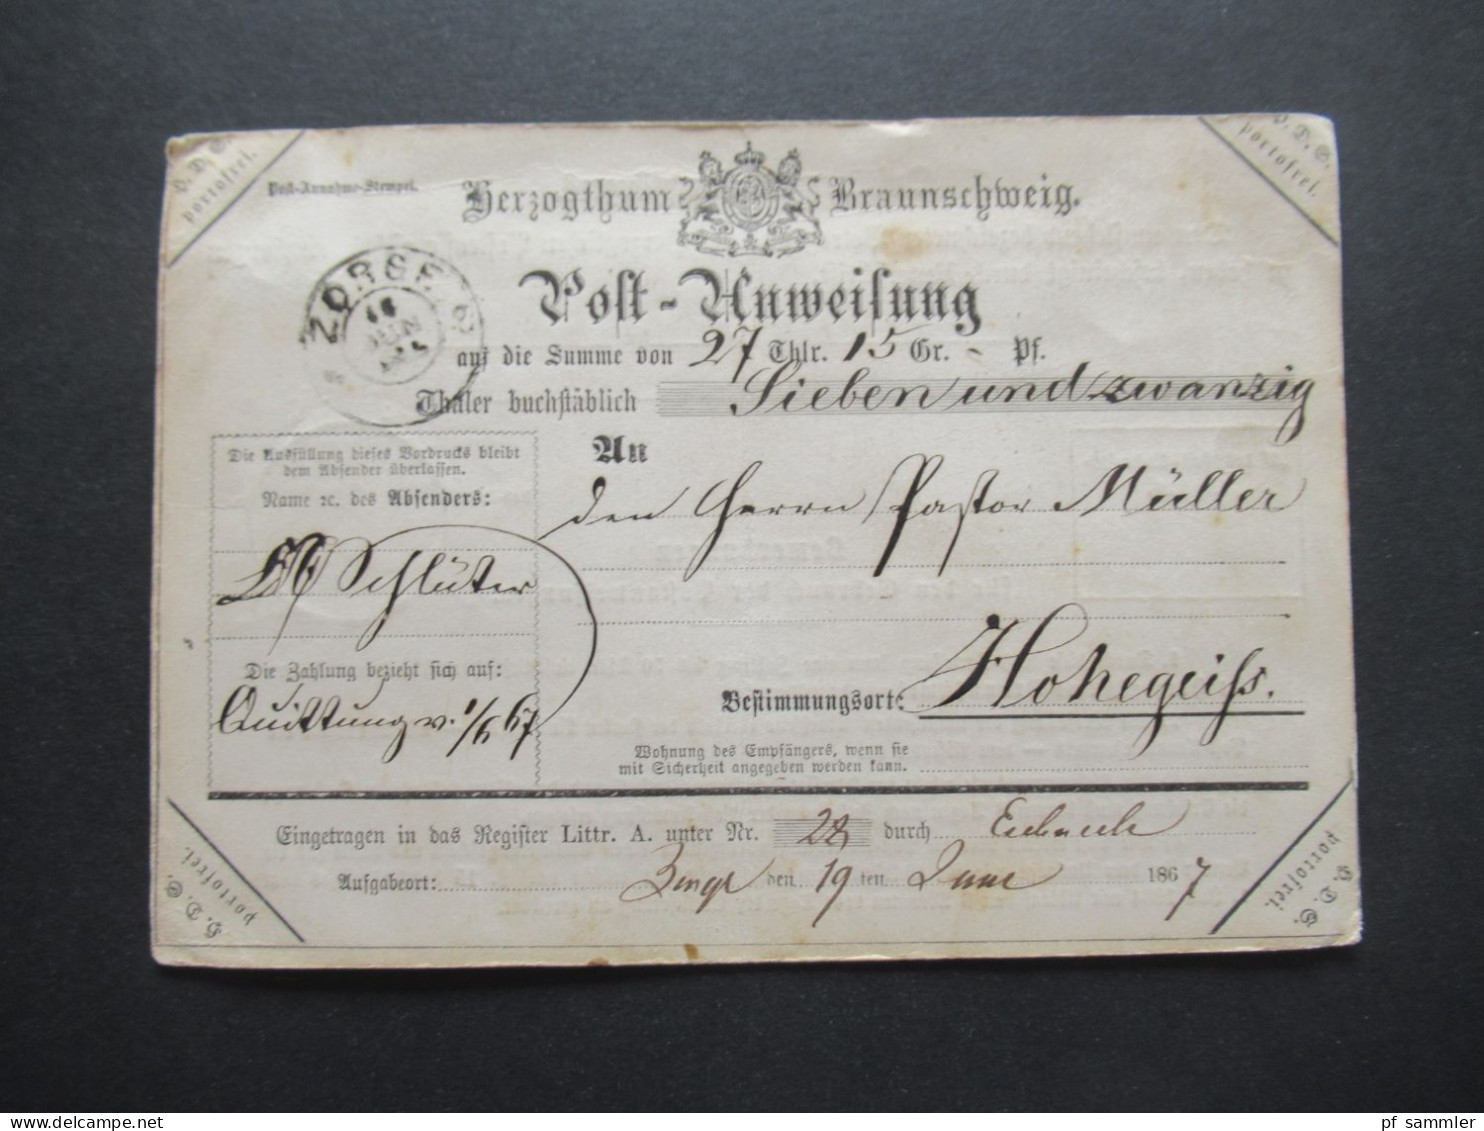 H. D. S.
portofrei.
H. D. S.
portofrei.
Post-Annahme-Stempel.
Herzogthum Braunschweig.
ZORGE
JUN
Post-Anweisung
auf die Summe von 27 Thlr. 15 Gr. - Pf.
Thaler buchstäblich Sieben und zwanzig
An
den Herrn Pastor Müller
Die Ausfüllung dieses Vordrucks bleibt
dem Absender überlassen.
Name ꝛc. des Absenders:
Schlüter
Die Zahlung bezieht sich auf:
Quittung v. 1/6 67
Bestimmungsort: Hohegeiss.
Wohnung des Empfängers, wenn sie
mit Sicherheit angegeben werden kann.
Eingetragen in das Register Littr. A. unter Nr. 28 durch
Aufgabeort: Zorge den 19 ten Juni 1867
H. D. S.
portofrei.
H. D. S.
portofrei.
pf_sammler